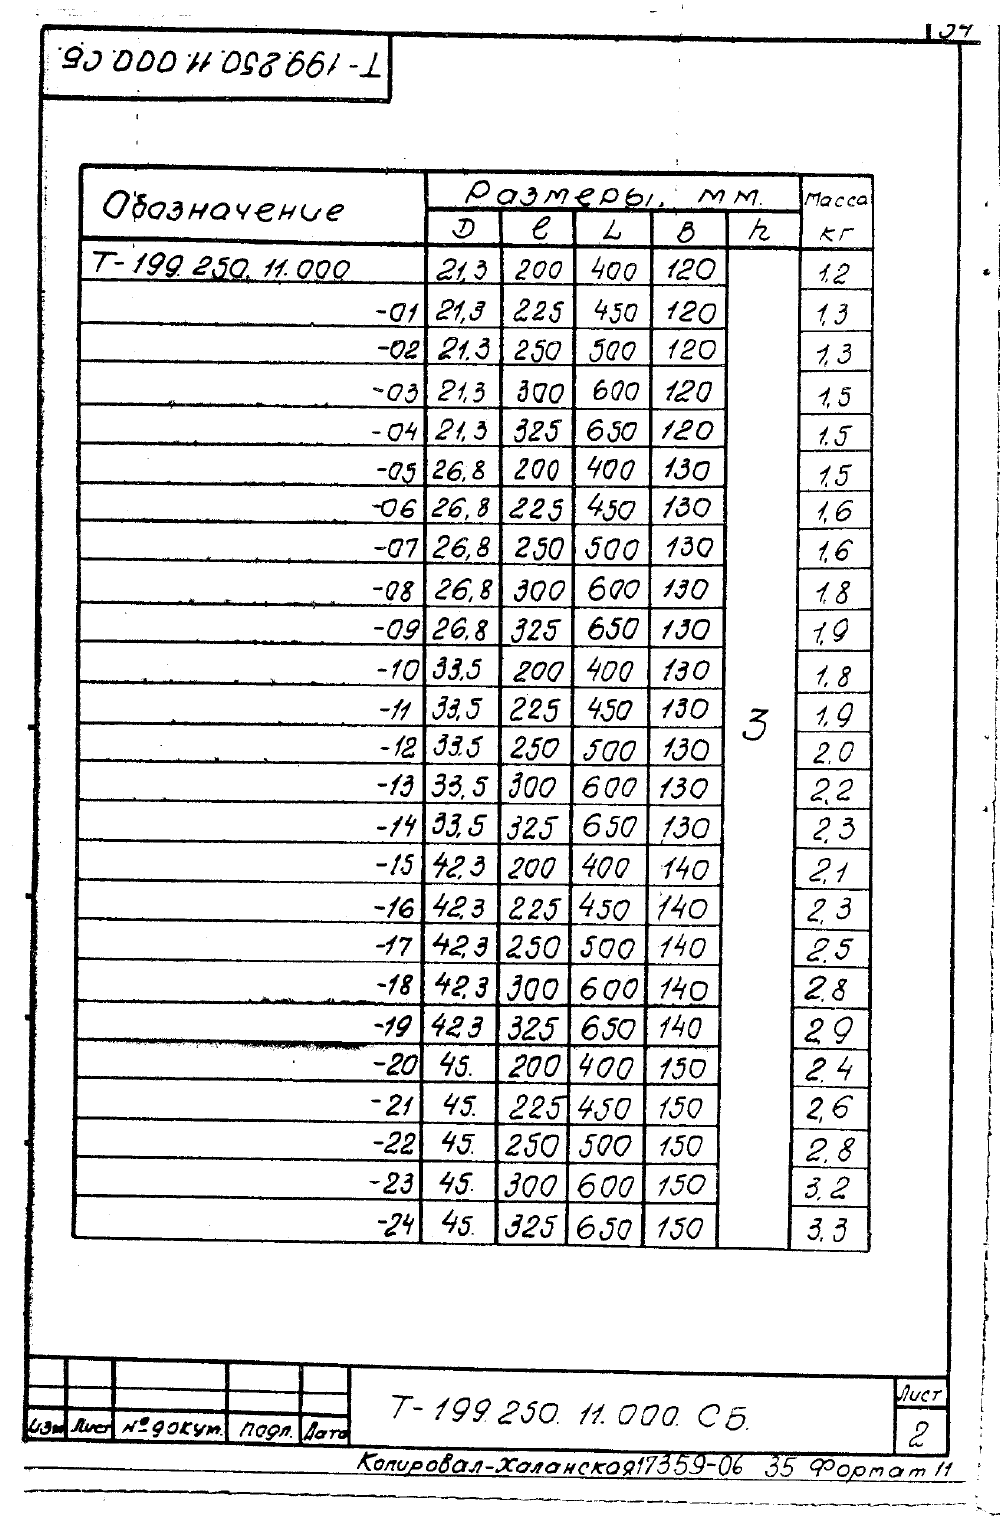 Т-199.250.11.000.СБ.
34
Обозначение Размеры, мм. Масса кг
D ℓ L B h
Т-199.250.11.000 21,3 200 400 120 1,2
-01 21,3 225 450 120 1,3
-02 21,3 250 500 120 1,3
-03 21,3 300 600 120 1,5
-04 21,3 325 650 120 1,5
-05 26,8 200 400 130 1,5
-06 26,8 225 450 130 1,6
-07 26,8 250 500 130 1,6
-08 26,8 300 600 130 1,8
-09 26,8 325 650 130 1,9
-10 33,5 200 400 130 1,8
-11 33,5 225 450 130 3 1,9
-12 33.5 250 500 130 2,0
-13 33,5 300 600 130 2,2
-14 33,5 325 650 130 2,3
-15 42,3 200 400 140 2,1
-16 42,3 225 450 140 2,3
-17 42,3 250 500 140 2.5
-18 42,3 300 600 140 2.8
-19 42 3 325 650 140 2 9
-20 45. 200 400 150 2.4
-21 45. 225 450 150 2,6
-22 45. 250 500 150 2.8
-23 45. 300 600 150 3,2
-24 45. 325 650 150 3,3
Т-199.250.11.000.СБ.
Лист
2
Изм Лист № докум. Подп. Дата
Копировал-Халанская 17359-06 35 Формат 11